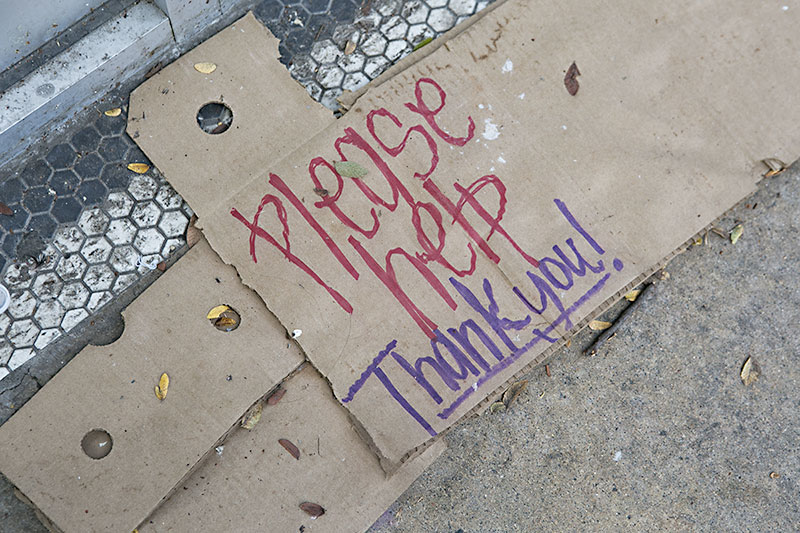 please
help
Thank you!